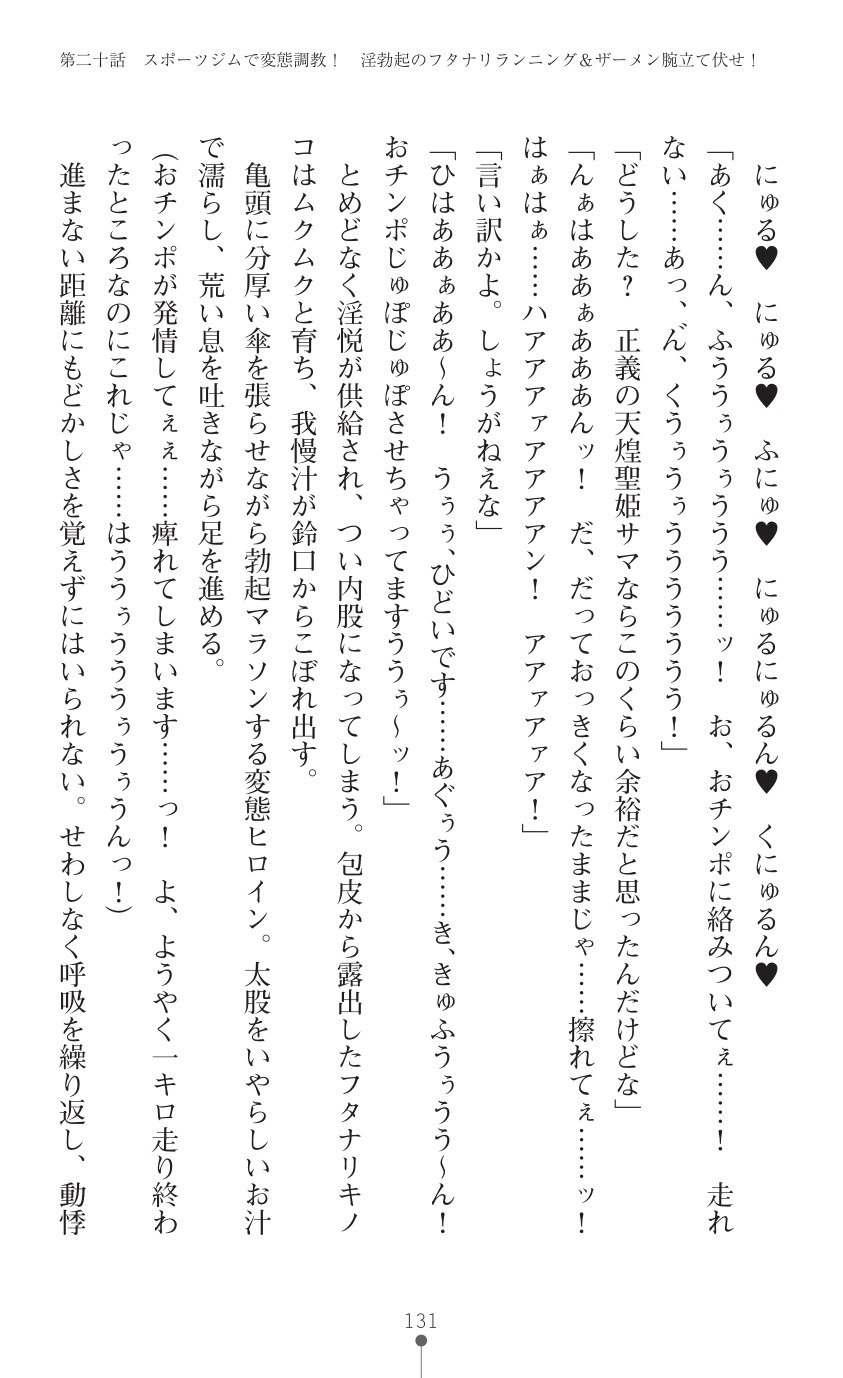 第二十話　スポーツジムで変態調教！　淫勃起のフタナリランニング＆ザーメン腕立て伏せ！
　にゅる♥　にゅる♥　ふにゅ♥　にゅるにゅるん♥　くにゅるん♥
「あく……ん、ふううぅうぅううう……ッ！　お、おチンポに絡みついてぇ……！　走れ
ない……あっ、ん゛、くうぅうぅうううううう！」
「どうした？　正義の天煌聖姫サマならこのくらい余裕だと思ったんだけどな」
「んぁはああぁあああんッ！　だ、だっておっきくなったままじゃ……擦れてぇ……ッ！
はぁはぁ……ハアアアァアアアアン！　アアァアァア！」
「言い訳かよ。しょうがねえな」
「ひはああぁああ～ん！　うぅぅ、ひどいです……あぐぅう……き、きゅふうぅうう～ん！
おチンポじゅぽじゅぽさせちゃってますううぅ～ッ！」
　とめどなく淫悦が供給され、つい内股になってしまう。包皮から露出したフタナリキノ
コはムクムクと育ち、我慢汁が鈴口からこぼれ出す。
　亀頭に分厚い傘を張らせながら勃起マラソンする変態ヒロイン。太股をいやらしいお汁
で濡らし、荒い息を吐きながら足を進める。
（おチンポが発情してぇぇ……痺れてしまいます……っ！　よ、ようやく一キロ走り終わ
ったところなのにこれじゃ……はううぅうううぅうぅうんっ！）
　進まない距離にもどかしさを覚えずにはいられない。せわしなく呼吸を繰り返し、動悸
131